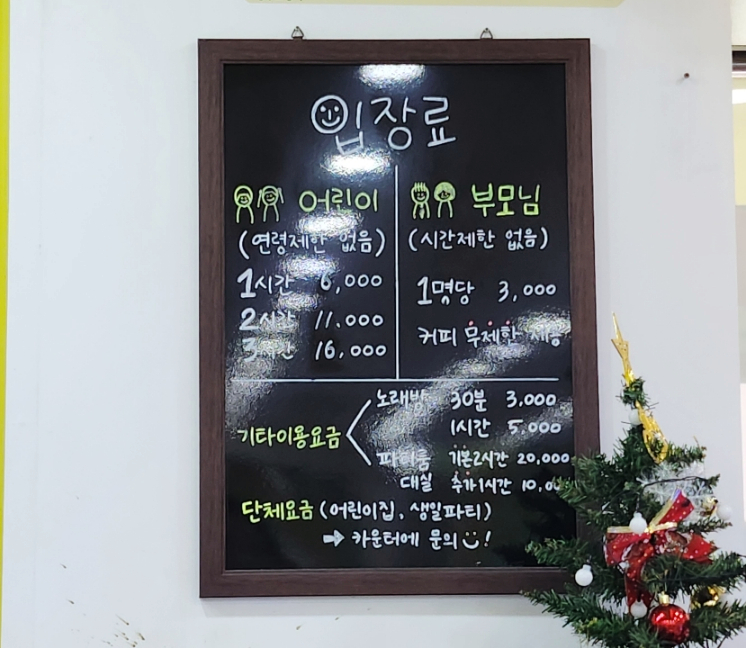 입장료
어린이
(연령제한 없음)
1시간 6,000
2시간 11,000
3시간 16,000
부모님
(시간제한 없음)
1명당 3,000
커피 무제한 제공
기타이용요금
노래방 30분 3,000
1시간 5,000
파티룸 기본2시간 20,000
대실 추가1시간
단체요금 (어린이집, 생일파티)
➡ 카운터에 문의 !